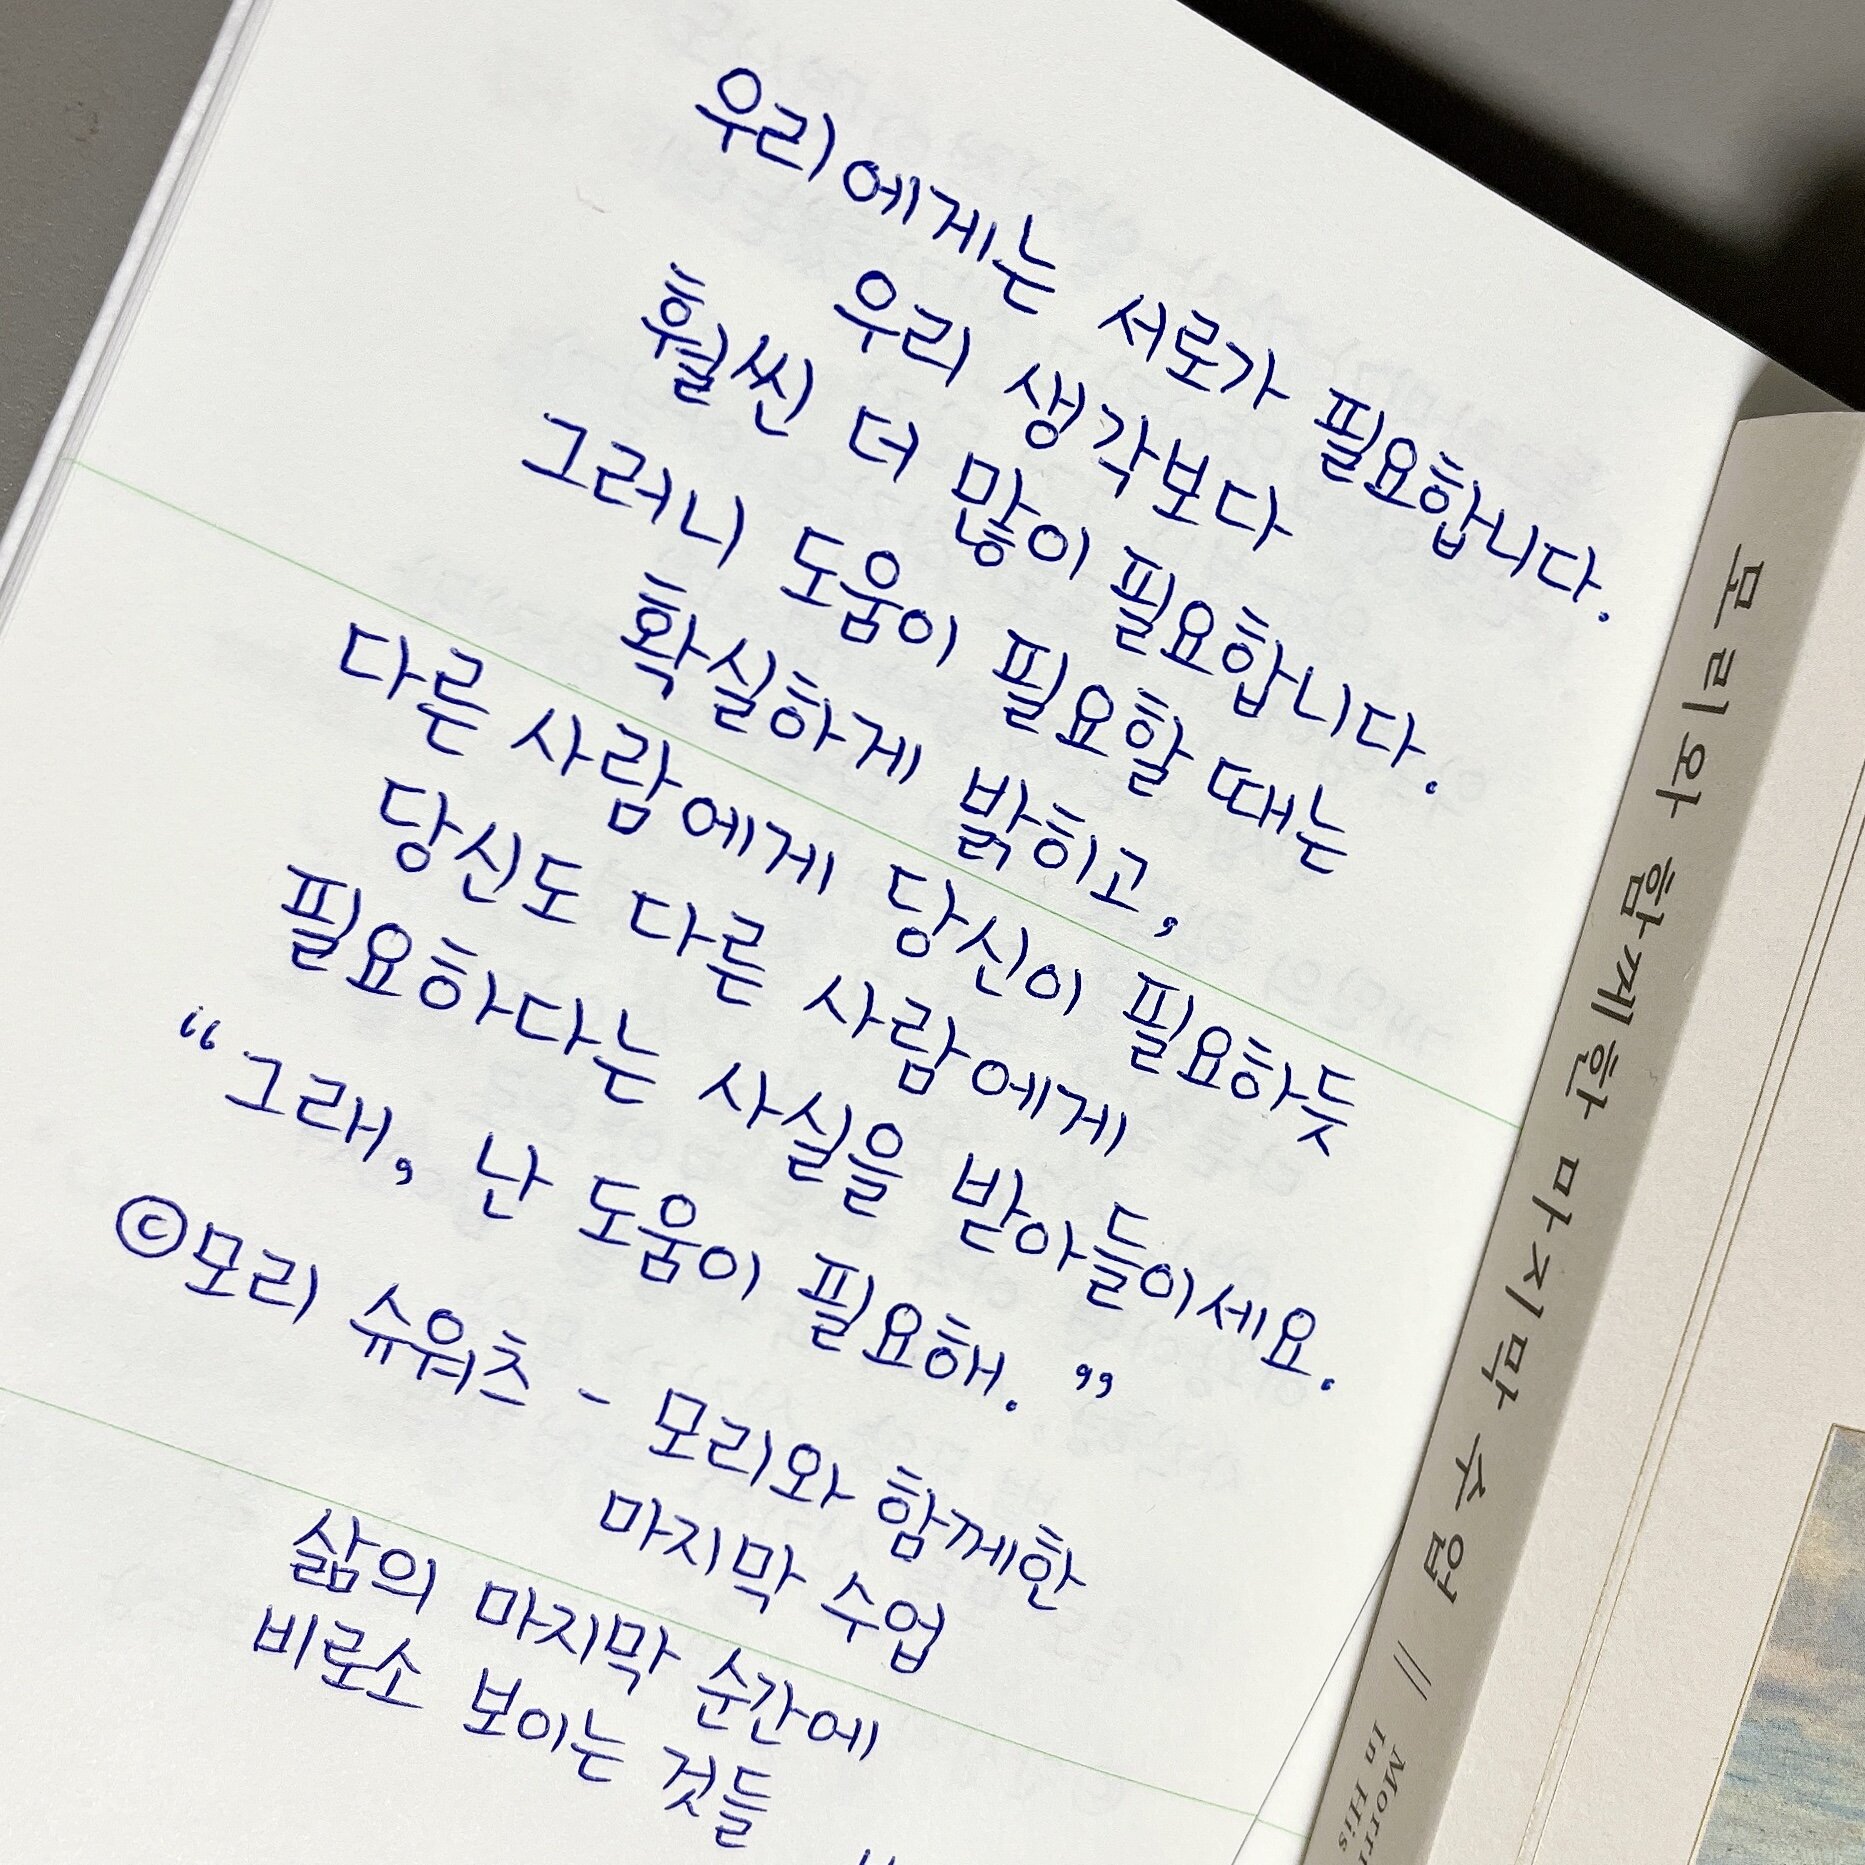 우리에게는 서로가 필요합니다.
우리 생각보다
훨씬 더 많이 필요합니다.
그러니 도움이 필요할 때는
확실하게 밝히고,
다른 사람에게 당신이 필요하듯
당신도 다른 사람에게
필요하다는 사실을 받아들이세요.
“그래, 난 도움이 필요해.”
©모리 슈워츠 - 모리와 함께한
마지막 수업
삶의 마지막 순간에
비로소 보이는 것들
모리와 함께한 마지막 수업 //
In His